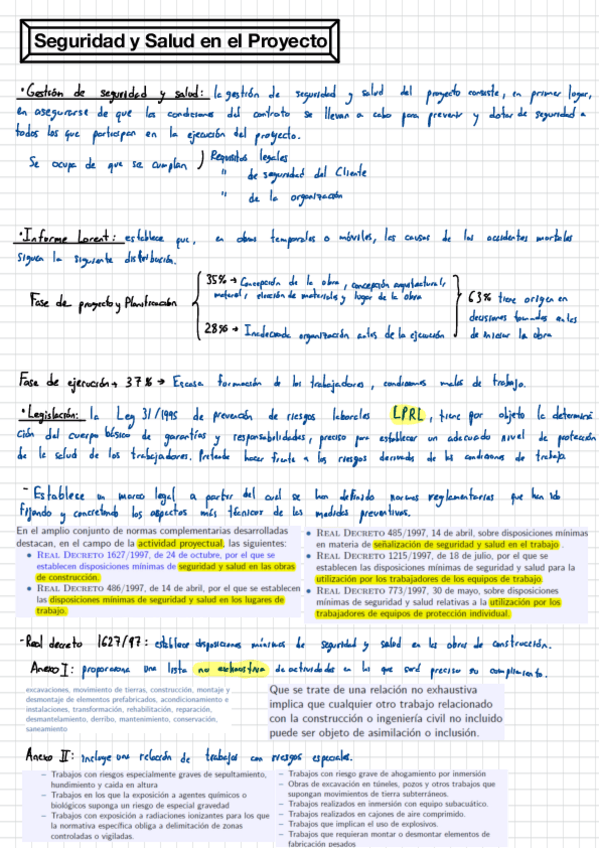 Seguridad y Salud en el Proyecto
· Gestión de seguridad y salud: la gestión de seguridad y salud del proyecto consiste, en primer lugar,
en asegurarse de que las condiciones del contrato se llevan a cabo para prevenir y dotar de seguridad a
todos los que participan en la ejecución del proyecto.
Se ocupa de que se cumplan ) Requisitos legales
" de seguridad del Cliente
" de la organización
· Informe Lorent: establece que, en obras temporales o móviles, las causas de los accidentes mortales
siguen la siguiente distribución.
35% → Concepción de la obra, concepción arquitectural,
material, elección de materiales y lugar de la obra
Fase de proyecto y Planificación
28% → Inadecuada organización antes de la ejecución
63% tiene origen en
decisiones tomadas antes
de iniciar la obra
Fase de ejecución → 37% → Escasa formación de los trabajadores, condiciones malas de trabajo.
· Legislación: la Ley 31/1995 de prevención de riesgos laborales LPRL, tiene por objeto la determina
ción del cuerpo básico de garantías y responsabilidades, preciso para establecer un adecuado nivel de protección
de la salud de los trabajadores. Pretende hacer frente a los riesgos derivados de las condiciones de trabajo
- Establece un marco legal a partir del cual se han definido normas reglamentarias que han ido
fijando y concretando los aspectos más técnicos de las medidas preventivas.
En el amplio conjunto de normas complementarias desarrolladas
destacan, en el campo de la actividad proyectual, las siguientes:
• REAL DECRETO 1627/1997, de 24 de octubre, por el que se
establecen disposiciones mínimas de seguridad y salud en las obras
de construcción.
• REAL DECRETO 486/1997, de 14 de abril, por el que se establecen
las disposiciones mínimas de seguridad y salud en los lugares de
trabajo.
• REAL DECRETO 485/1997, 14 de abril, sobre disposiciones mínimas
en materia de señalización de seguridad y salud en el trabajo .
• REAL DECRETO 1215/1997, de 18 de julio, por el que se
establecen las disposiciones mínimas de seguridad y salud para la
utilización por los trabajadores de los equipos de trabajo.
• REAL DECRETO 773/1997, 30 de mayo, sobre disposiciones
mínimas de seguridad y salud relativas a la utilización por los
trabajadores de equipos de protección individual.
- Real decreto 1627/97: establece disposiciones mínimas de seguridad y salud en las obras de construcción.
Anexo I: proporciona una lista no exhaustiva de actividades en las que será preciso su cumplimiento.
excavaciones, movimiento de tierras, construcción, montaje y
desmontaje de elementos prefabricados, acondicionamiento e
instalaciones, transformación, rehabilitación, reparación,
desmantelamiento, derribo, mantenimiento, conservación,
saneamiento
Que se trate de una relación no exhaustiva
implica que cualquier otro trabajo relacionado
con la construcción o ingeniería civil no incluido
puede ser objeto de asimilación o inclusión.
Anexo II: incluye una relación de trabajos con riesgos especiales.
– Trabajos con riesgos especialmente graves de sepultamiento,
hundimiento y caida en altura
– Trabajos en los que la exposición a agentes químicos o
biológicos suponga un riesgo de especial gravedad
– Trabajos con exposición a radiaciones ionizantes para los que
la normativa específica obliga a delimitación de zonas
controladas o vigiladas.
– Trabajos con riesgo grave de ahogamiento por inmersión
– Obras de excavación en túneles, pozos y otros trabajos que
supongan movimientos de tierra subterráneos.
– Trabajos realizados en inmersión con equipo subacuático.
– Trabajos realizados en cajones de aire comprimido.
– Trabajos que implican el uso de explosivos.
– Trabajos que requieran montar o desmontar elementos de
fabricación pesados